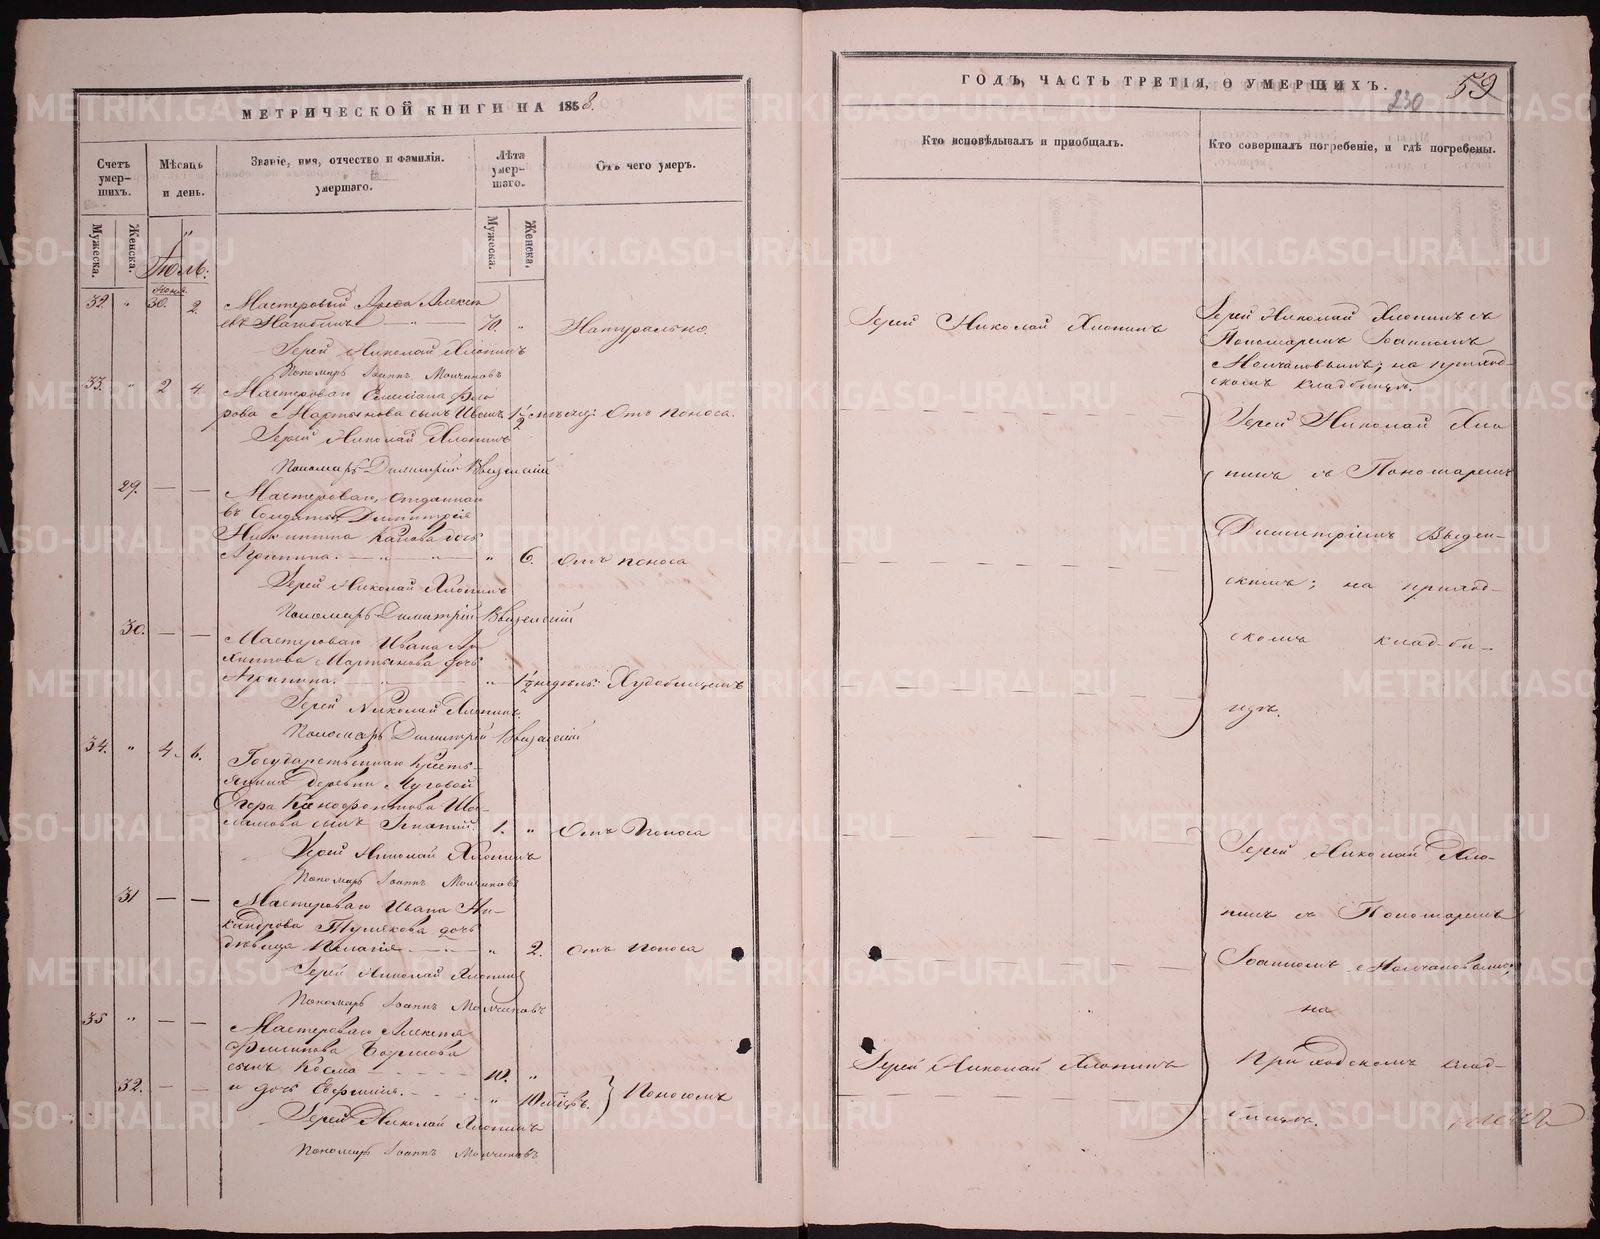 МЕТРИЧЕСКОЙ КНИГИ НА 1858.
Счетъ умер-шихъ.
Мѣсяць и день.
Званіе, имя, отчество и фамилія.
умершаго.
Лѣта умер-шаго.
Отъ чего умеръ.
Мужеска.
Женска.
Мужеска.
Женска.
Іюль.
Іюня
32. " 30. 2.
Мастеровый
70. " Натурально.
Іерей Николай Хлопинъ
Пономарь Іоаннъ Молчановъ
33. " 2 4.
Мастероваго
рова Мартьянова сынъ Иванъ 1½ Отъ поноса.
Іерей Николай Хлопинъ
Пономарь Димитрій Введенскій
29. — —
Мастероваго, отданнаго
въ Солдаты, Димитрія
Никитина дочь
Агрипина. — " — " — " 6. Отъ поноса
Іерей Николай Хлопинъ
Пономарь Димитрій Введенскій
30. — —
Мастероваго Ивана Ар
хипова Мартьянова дочь
Агрипина. " 1½ недѣль:
Іерей Николай Хлопинъ.
Пономарь Димитрій Введенскій
34. " 4. 6.
Государственнаго Кресть-
янина деревни Луговой
Егора Ша-
сынъ Игнатій. 1. " Отъ Поноса
Іерей Николай Хлопинъ
Пономарь Іоаннъ Молчановъ
31 — —
Мастероваго Ивана Ни-
кандрова дочь
дѣвица Пелагія " 2. Отъ Поноса
Іерей Николай Хлопинъ
Пономарь Іоаннъ Молчановъ
35 " — —
Мастероваго Алексѣя
Филипова
сынъ Косма 10. "
32. — —
и дочь Евфимія. " 10 мѣсцъ. Поносомъ
Іерей Николай Хлопинъ
Пономарь Іоаннъ Молчановъ
ГОДЪ, ЧАСТЬ ТРЕТІЯ, О УМЕРШИХЪ.
59
230
Кто исповѣдывалъ и пріобщалъ.
Кто совершалъ погребеніе, и гдѣ погребены.
Іерей Николай Хлопинъ
Іерей Николай Хлопинъ съ
Пономаремъ Іоанномъ
Молчановымъ; на приход-
скомъ кладбищѣ.
Іерей Николай Хло
пинъ съ Пономаремъ
Димитріемъ Введен-
скимъ; на приход-
скомъ кладби-
щѣ.
Іерей Николай Хло-
пинъ съ Пономаремъ
Іоанномъ Молчановымъ;
на
Іерей Николай Хлопинъ
Приходскомъ клад-
бищѣ.
METRIKI.GASO-URAL.RU